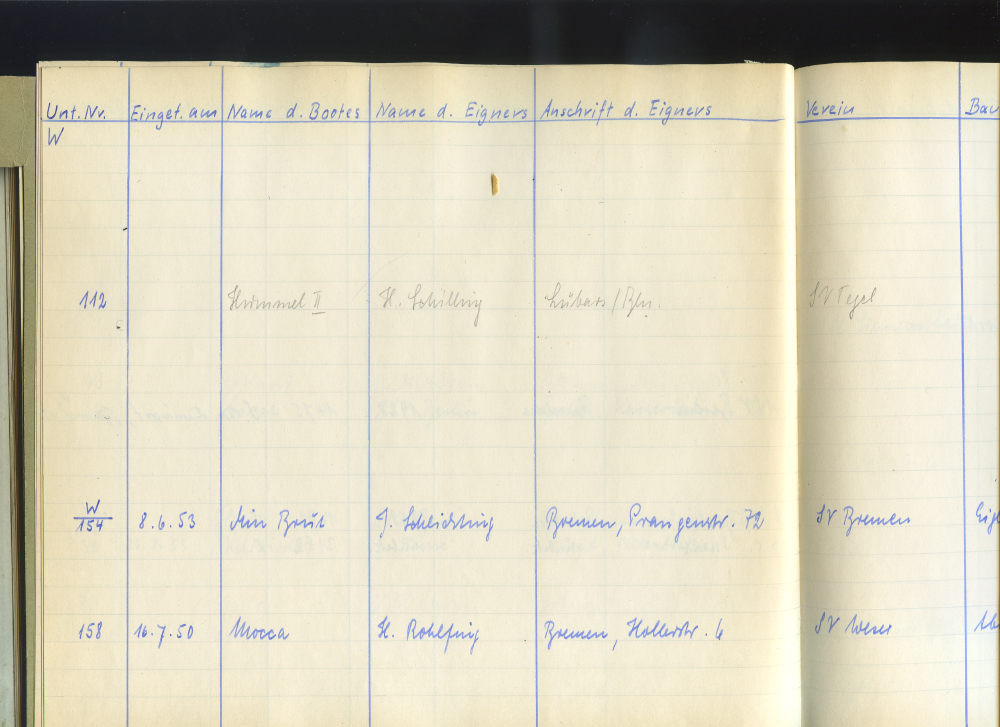 Unt. Nr. Einget. am Name d. Bootes Name d. Eigners Anschrift d. Eigners Verein Bau
W
112 Hummel II H. Schilling Lübars / Bln. SV Tegel
W
154 8.6.53 Min Brut J. Schlichting Bremen, Prangenstr. 72 SV Bremen Eig
158 16.7.50 Mocca H. Rohlfing Bremen, Hollerstr. 6 SV Weser